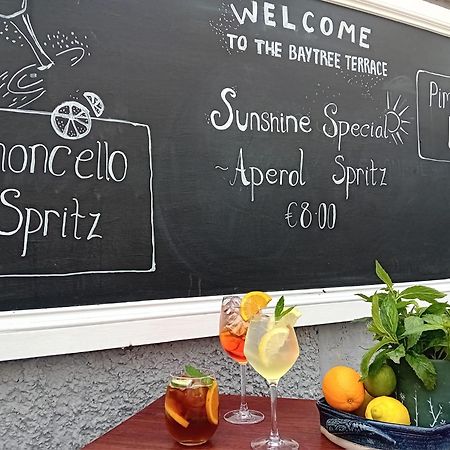 WELCOME
TO THE BAYTREE TERRACE
Sunshine Special
~Aperol Spritz
€8.00
moncello
Spritz
Pim